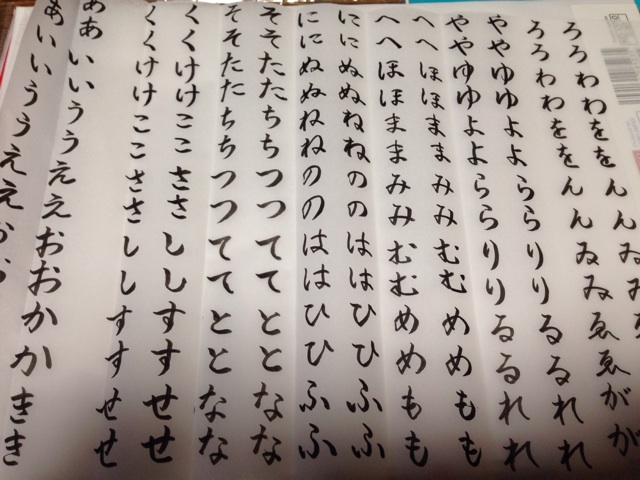 あいいううええお
ああいいううええおおかかきき
くくけけここささししすすせせ
くくけけここささししすすせせ
そそたたちちつつててととなな
そそたたちちつつててととなな
ににぬぬねねののははひひふふ
ににぬぬねねののははひひふふ
へへほほままみみむむめめもも
へへほほままみみむむめめもも
ややゆゆよよららりりるるれれ
ややゆゆよよららりりるるれれ
ろろわわををんんゐゐゑゑがが
ろろわわををんんゐゐ